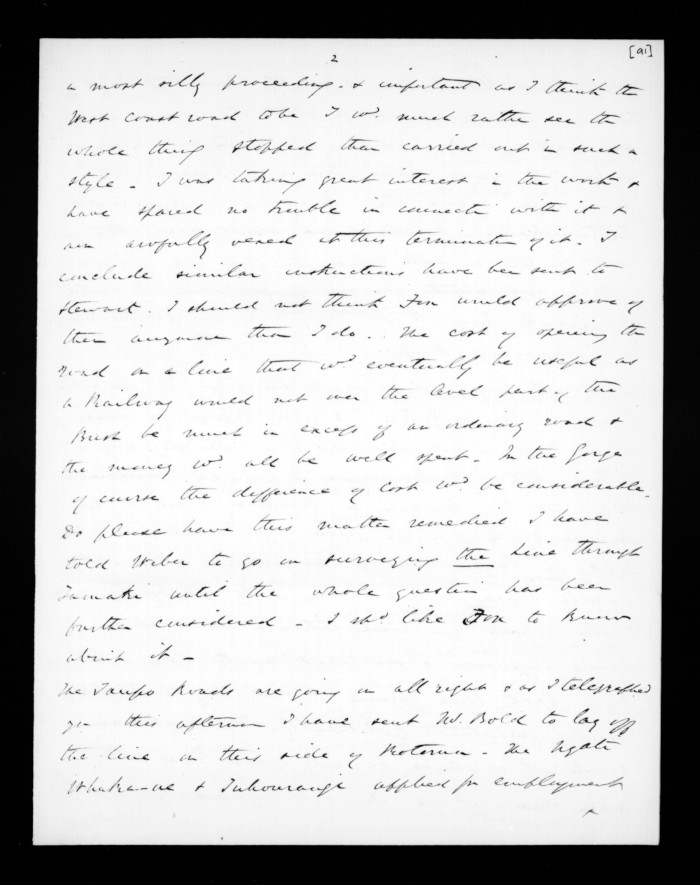 [91]
2
a most silly proceeding - & important as I think the
West Coast road to be I wd. much rather see the
whole thing stopped than carried out in such a
style - I was taking great interest in the work &
have spared no trouble in connectn with it &
am awfully vexed at this termination of it. I
conclude similar instructions have been sent to
Stewart. I should not think Fox would approve of
them anymore than I do. The cost of opening the
road on a line that wd. eventually be useful as
a Railway would not over the level part of the
Bush be much in excess of an ordinary road &
the money wd. all be well spent - In the Gorge
of course the difference of cost wd. be considerable.
Do please have this matter remedied I have
told Weber to go on surveying the line through
Tamaki until the whole question has been
further considered - I shd. like Fox to know
about it -
The Taupo Roads are going on all right & as I telegraphed
you this afternoon I have sent Bold to lay off
the line on this side of Rotorua - The Ngati
Whakaue & Tuhourangi applied for employment